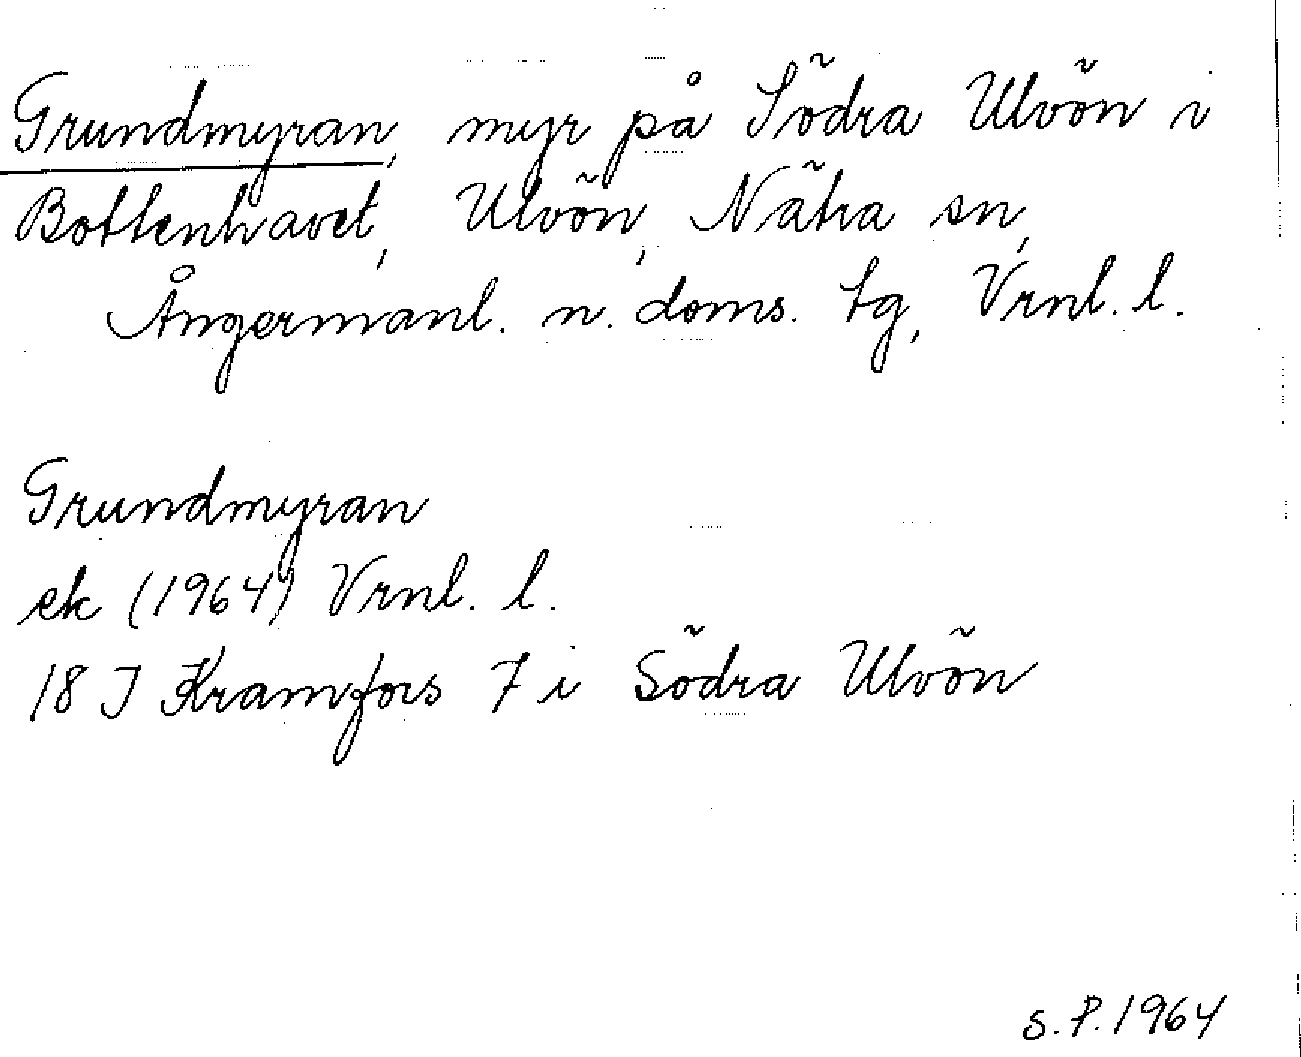 Grundmyran, myr på Södra Ulvön i
Bottenhavet, Ulvön, Nätra sn,
Ångermanl. n. doms. tg, Vrnl. l.
Grundmyran
ek (1964) Vrnl. l.
18 J Kramfors 7 i Södra Ulvön
S. P. 1964